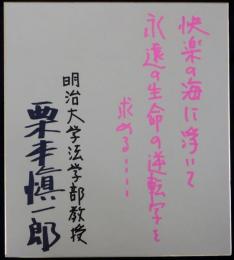 快楽の海に浮いて
永遠の生命の逆転写を
求める・・・・
明治大学法学部教授
栗本慎一郎